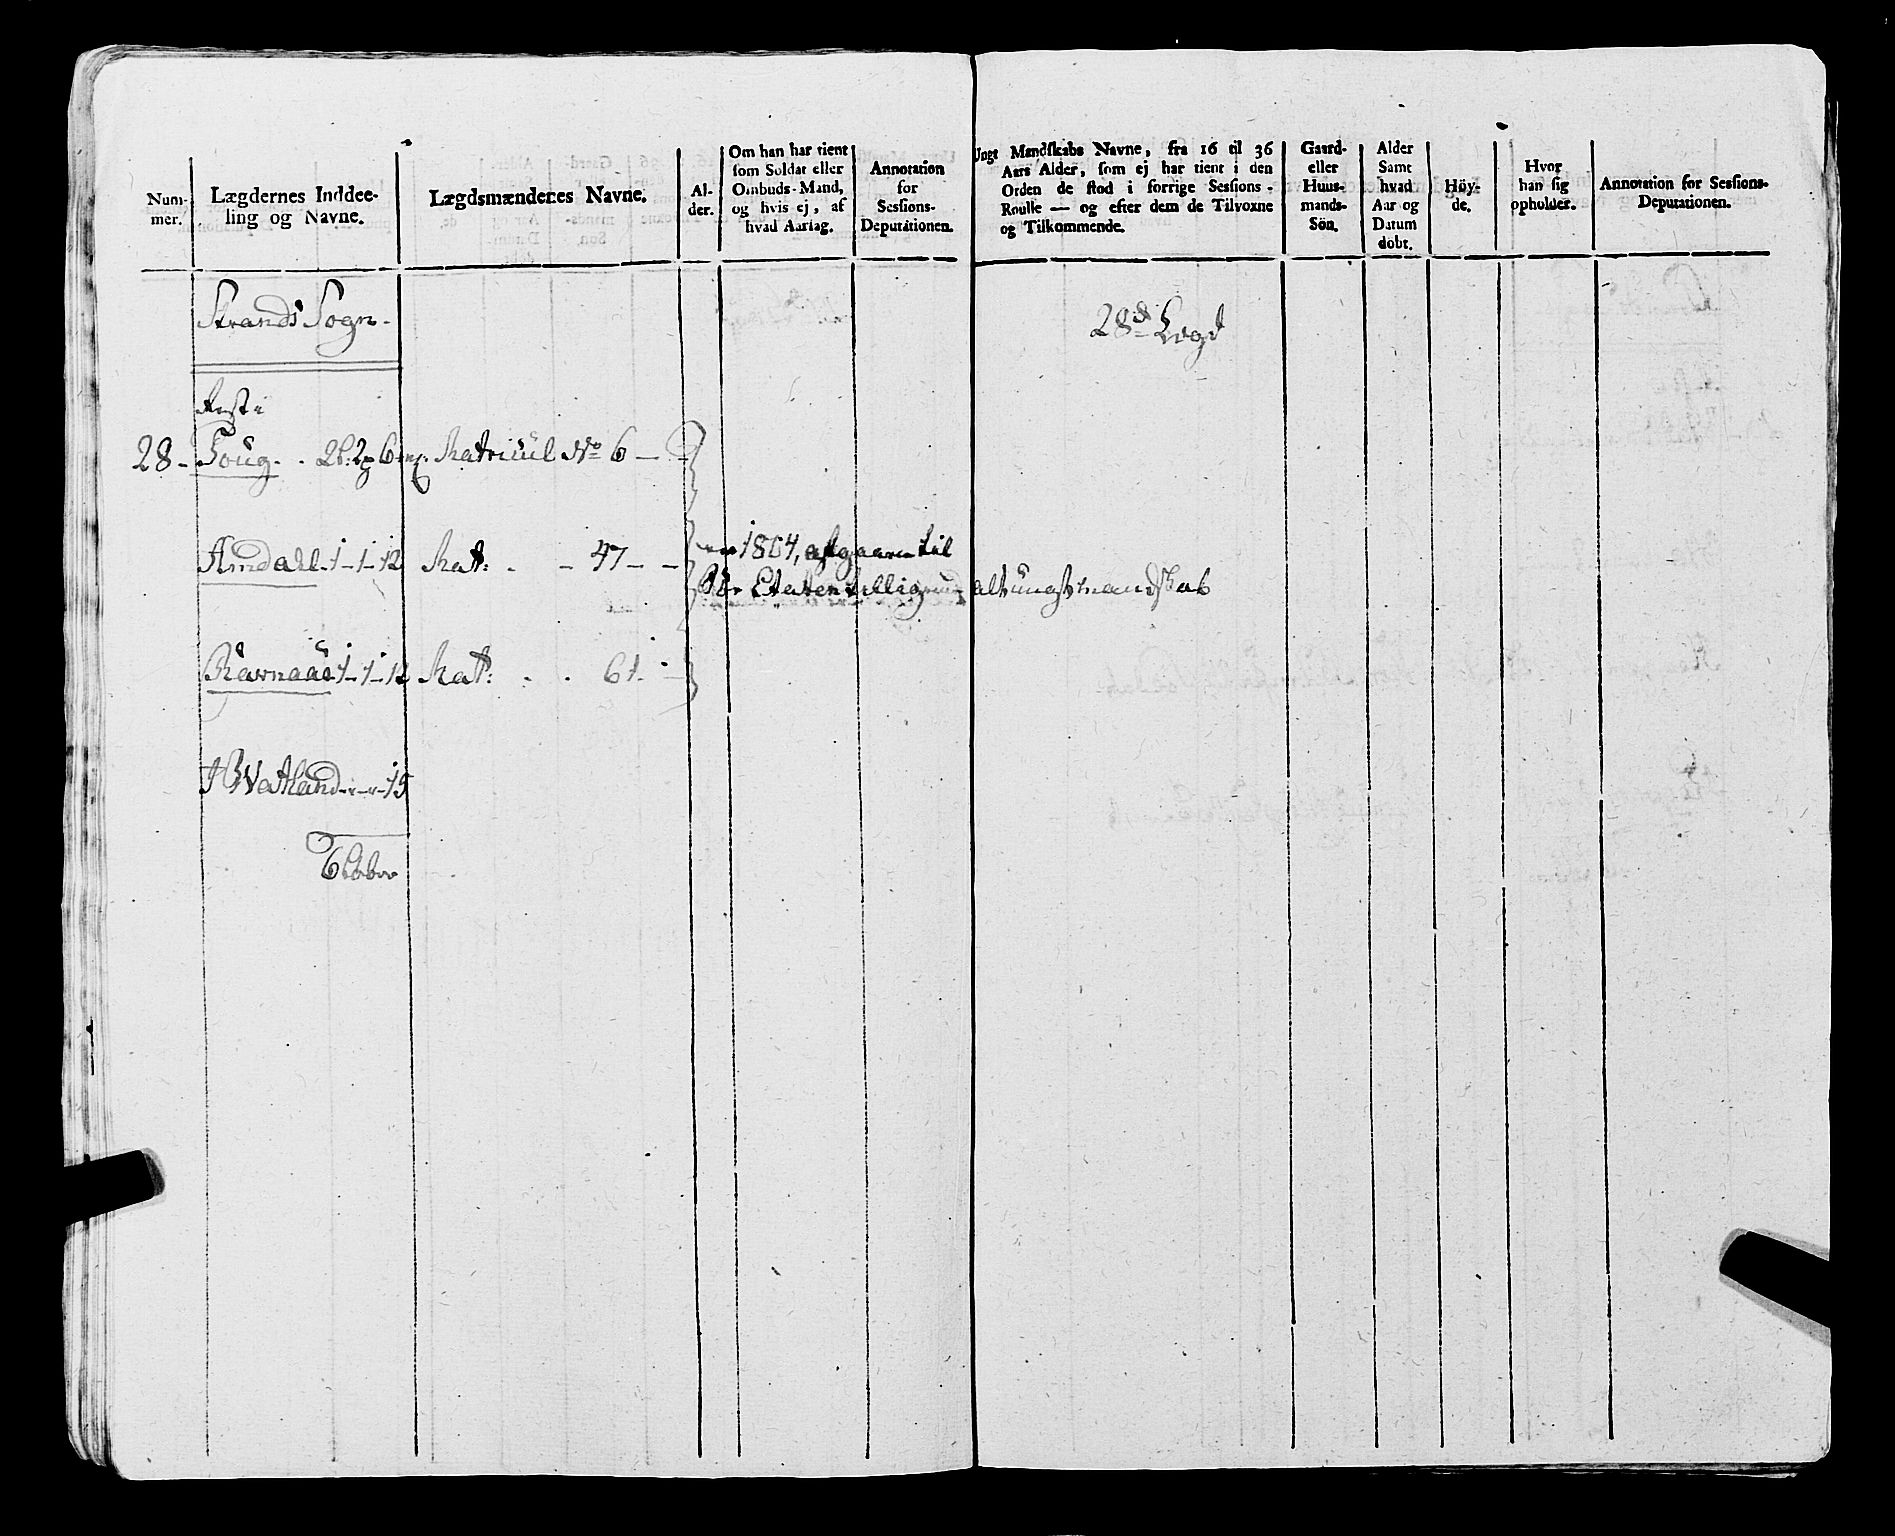 Num-
mer.
Lægdernes Inddee-
ling og Navne.
Lægdsmændenes Navne.
Al-
der.
Om han har tient
som Soldat eller
Ombuds-Mand,
og hvis ej, af
hvad Aarsag.
Annotation
for
Sessions-
Deputationen.
Ungt Mandskabs Navne, fra 16 til 36
Aars Alder, som ej har tient i den
Orden de stod i forrige Sessions-
Roulle — og efter dem de Tilvoxne
og Tilkommende.
Gaard-
eller
Huus-
mands-
Sön.
Alder
Samt
hvad
Aar og
Datum
döbt.
Höy-
de.
Hvor
han sig
opholder.
Annotation for Sessions-
Deputationen.
Strands Sogn.
28d Legd
28 - Foug
Matricul No 6 -
Amdahl 1-1-12 Mat: - - 47 - -
1804, afgaaen til
Söe Etaten tillige alt ungt mandskab
Ravnaae 1-1-12 Mat: . . 61.